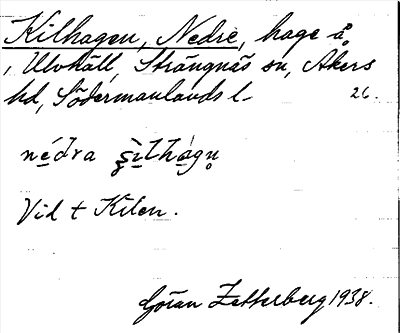 Kilhagen, Nedre, hage å
, Ulvhäll, Strängnäs sn, Åkers
hd, Södermanlands l- 26.
Vid t Kilen.
Göran Zetterberg 1938.